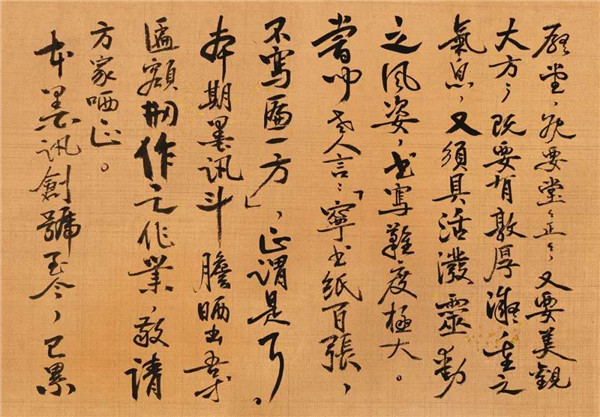 堂,既要堂々正々,又要美觀
大方;既要有敦厚凝重之
氣息,又須具活潑靈動
之風姿,書寫難度極大。
嘗聞老人言:「寧書纸百張,
不寫匾一方」,正謂是了。
本期墨訊斗膽晒出吾
匾額刱作之作業,敬請
方家哂正。
本墨訊創號至今,已累